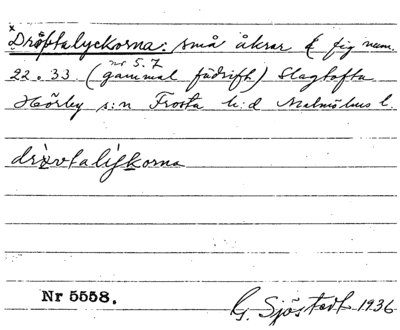 Dröptalyckorna: små åkrar & fig num.
nr 5.7
22 o 33 (gammal fädrift) Slagtofta
Hörby s:n Frosta h:d Malmöhus l.
Nr 5558.
G. Sjöstedt 1936